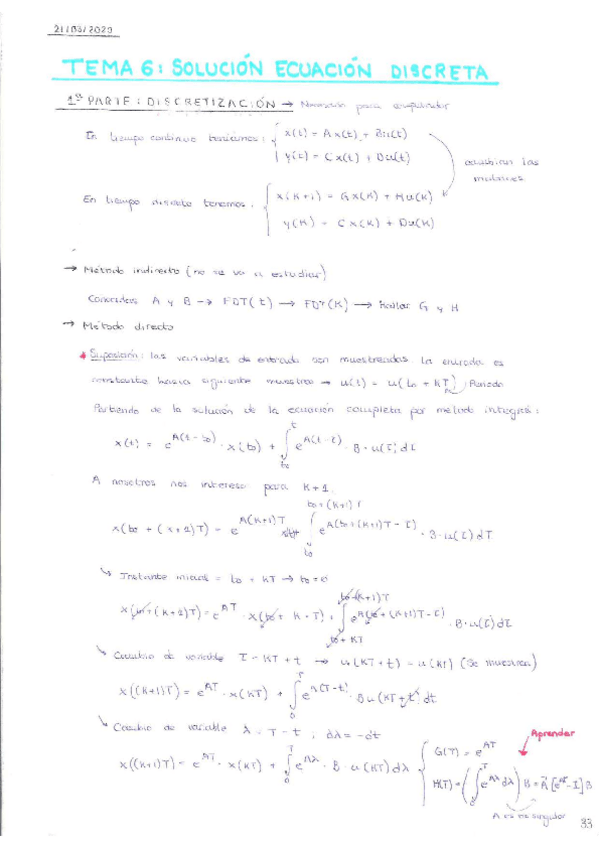 21/03/2023
TEMA 6: SOLUCIÓN ECUACIÓN DISCRETA
1ª PARTE: DISCRETIZACIÓN → Necesario para computador
En tiempo continuo teníamos: { ẋ(t) = Ax(t) + Bu(t)
y(t) = Cx(t) + Du(t)
cambian las matrices
En tiempo discreto tenemos: { x(K+1) = Gx(K) + Hu(K)
y(K) = Cx(K) + Du(K)
→ Método indirecto (no se va a estudiar)
Conocidas A y B → FDT(t) → FDT(K) → Hallar G y H
→ Método directo
Suposición: las variables de entrada son muestreadas la entrada es
constante hasta siguiente muestreo → u(t) = u(t0 + KT) Periodo
Partiendo de la solución de la ecuación completa por método integral:
x(t) = e^A(t-t0) · x(t0) + ∫t0^t e^A(t-τ) · B · u(τ) dτ
A nosotros nos interesa para K+1
x(t0 + (K+1)T) = e^A(K+1)T x(t0)+ ∫t0^t0+(K+1)T e^A(t0+(K+1)T-τ) · B · u(τ) dτ
↳ Instante inicial = t0 + KT → t0=0
x(t0+(K+1)T) = e^AT · x(t0+K·T) + ∫t0+KT^t0+(K+1)T e^A(t0+(K+1)T-τ) · B · u(τ) dτ
↳ Cambio de variable τ = KT + t → u(KT+t) = u(KT) (Se muestrea)
x((K+1)T) = e^AT · x(KT) + ∫0^T e^A(T-t) · Bu(KT+t) dt
↳ Cambio de variable λ = T - t ; dλ = -dt
Aprender
x((K+1)T) = e^AT · x(KT) + ∫0^T e^Aλ · B · u(KT) dλ { G(T) = e^AT
H(T) = (∫0^T e^Aλ dλ) B = A^-1[e^AT - I]B
A es no singular
33